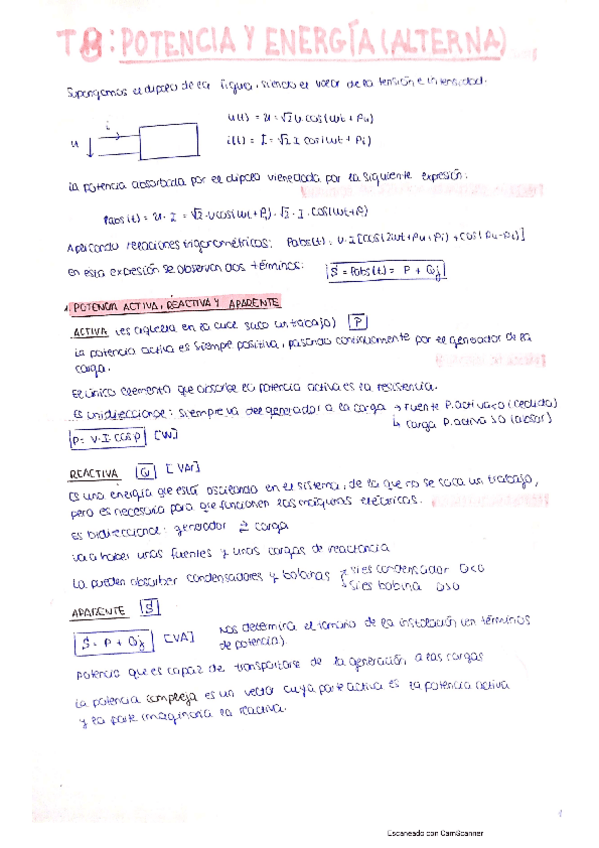 T8: POTENCIA Y ENERGÍA (ALTERNA)
Supongamos el dipolo de la figura, siendo el valor de la tensión e intensidad.
i
u
u(t) = u = √2 U cos(wt + φu)
i(t) = I = √2 I cos(wt + φi)
la potencia absorbida por el dipolo viene dada por la siguiente expresión:
Pabs(t) = u · I = √2 · U cos(wt + φ) · √2 · I · cos(wt + φ)
Aplicando relaciones trigonométricas: Pabs(t) = U · I [cos(2wt + φu + φi) + cos(φu - φi)]
en esta expresión se observan dos términos: S = Pabs(t) = P + Qj
1. POTENCIA ACTIVA, REACTIVA Y APARENTE
ACTIVA (es aquella en la que saco un trabajo) P
la potencia activa es siempre positiva, pasando continuamente por el generador de la
carga.
el único elemento que absorbe la potencia activa es la resistencia.
Es unidireccional: siempre va del generador a la carga → fuente P. activa <0 (cedida)
↳ carga P. activa >0 (absor)
P = V · I · cos φ [W]
REACTIVA Q [VAr]
es una energía que está oscilando en el sistema, de la que no se saca un trabajo,
pero es necesaria para que funcionen las máquinas eléctricas.
es bidireccional: generador ⇄ carga
va a haber unas fuentes y unas cargas de reactancia
la pueden absorber condensadores y bobinas si es condensador Q<0
si es bobina Q>0
APARENTE S
S = P + Qj [VA] nos determina el tamaño de la instalación (en términos
de potencia)
potencia que es capaz de transportarse de la generación, a las cargas
la potencia compleja es un vector cuya parte activa es la potencia activa
y la parte imaginaria la reactiva.
1
Escaneado con CamScanner